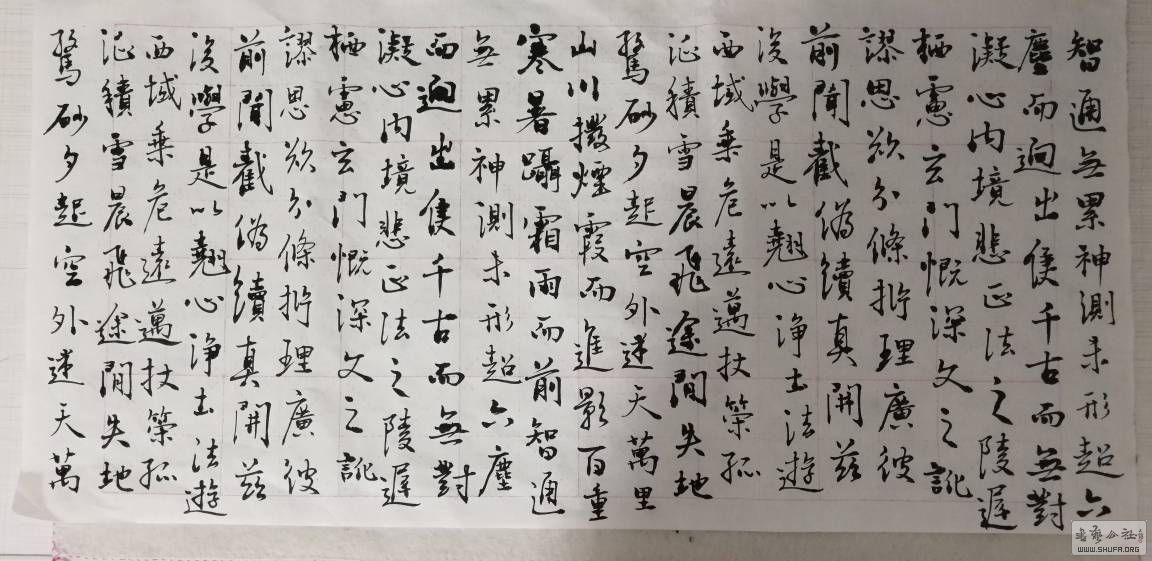 智通無累神測未形超六
塵而迥出隻千古而無對
凝心内境悲正法之陵遲
栖慮玄門慨深文之訛
謬思欲分條析理廣彼
前聞截偽續真開茲
後學是以翹心淨土法遊
西域乘危遠邁杖策孤
征積雪晨飛途間失地
驚砂夕起空外迷天萬里
山川撥煙霞而進影百重
寒暑躡霜雨而前智通
無累神測未形超六塵
而迥出隻千古而無對
凝心内境悲正法之陵遲
栖慮玄門慨深文之訛
謬思欲分條析理廣彼
前聞截偽續真開茲
後學是以翹心淨土法遊
西域乘危遠邁杖策孤
征積雪晨飛途間失地
驚砂夕起空外迷天萬
書藝公社
WWW.SHUFA.ORG